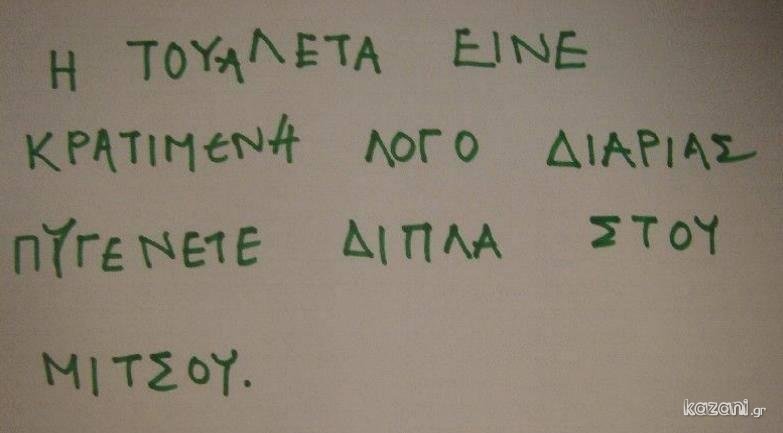 Η ΤΟΥΑΛΕΤΑ ΕΙΝΕ
ΚΡΑΤΙΜΕΝΗ ΛΟΓΟ ΔΙΑΡΙΑΣ
ΠΥΓΕΝΕΤΕ ΔΙΠΛΑ ΣΤΟΥ
ΜΙΤΣΟΥ.
kazani.gr